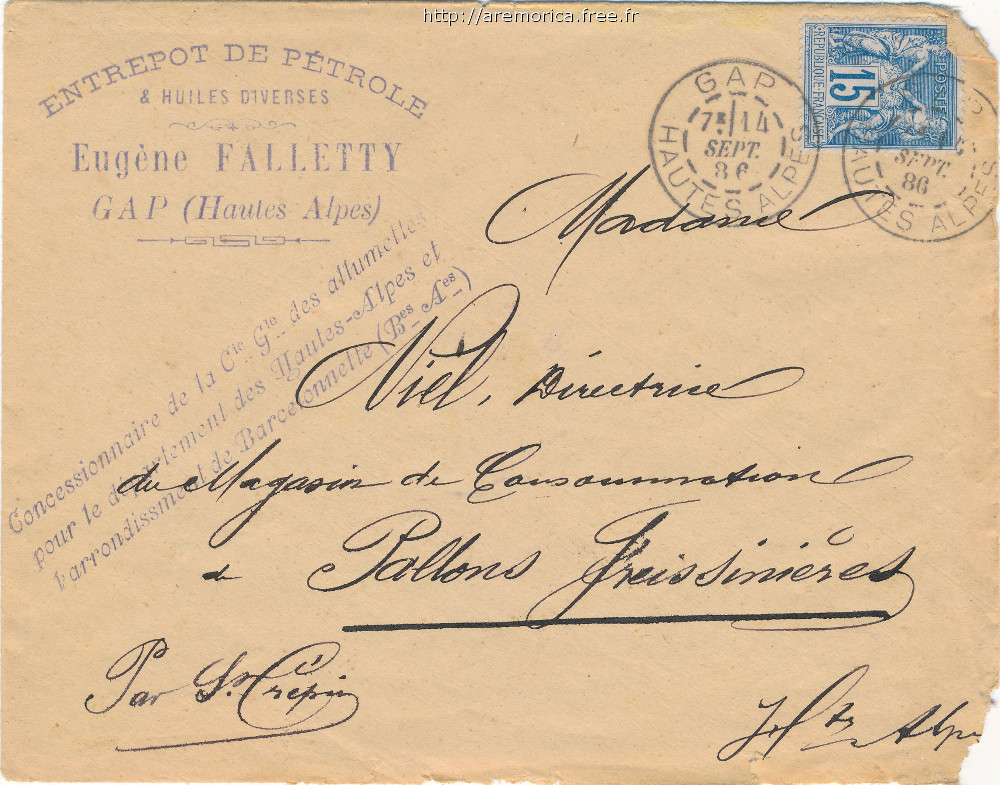 http://aremorica.free.fr
ENTREPOT DE PÉTROLE
& HUILES DIVERSES
Eugène FALLETTY
GAP (Hautes Alpes)
Concessionnaire de la Cie Gle des allumettes
pour le département des Hautes-Alpes et
l'arrondissment de Barcelonnette (Bes Aes)
POSTES
15
REPUBLIQUE FRANÇAISE
GAP
7E 14
SEPT.
86
HAUTES ALPES
SEPT.
86
HAUTES ALPES
Madame
Niel, Directrice
du Magasin de Consommation
de Pallons Freissinières
Par St Crépin
Htes Alpes